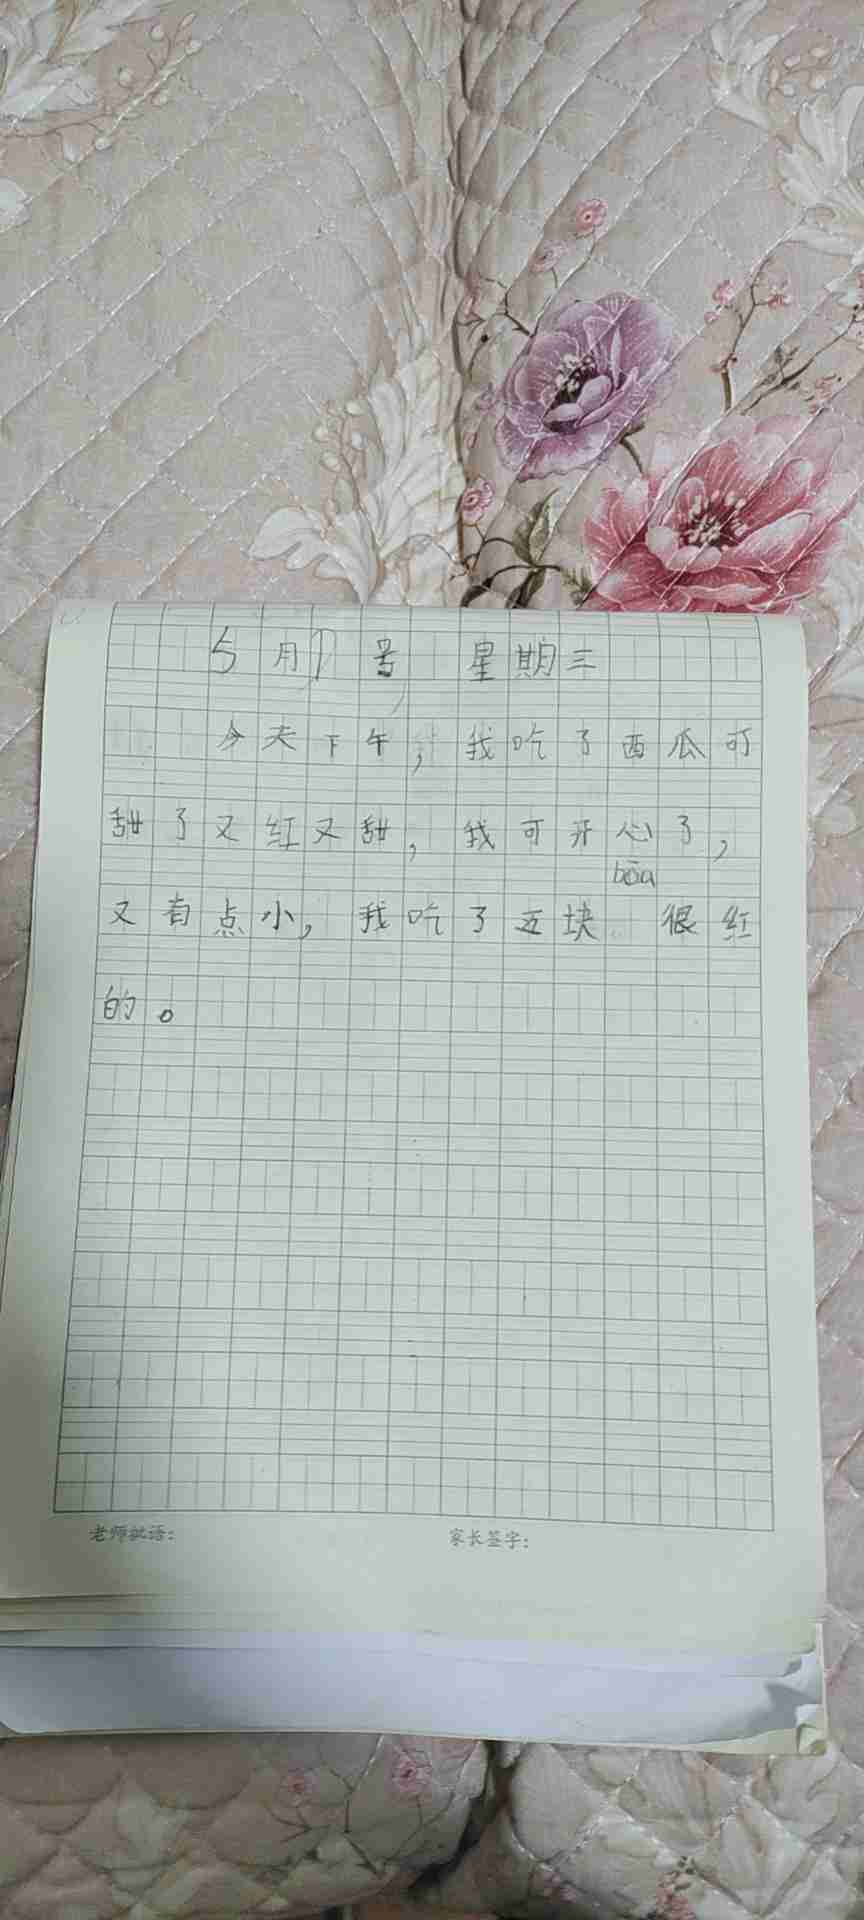 5月7号 星期三
今天下午，我吃了西瓜可
甜了又红又甜，我可开心了，
bōa
又有点小，我吃了五块。很红
的。
老师批语：
家长签字：